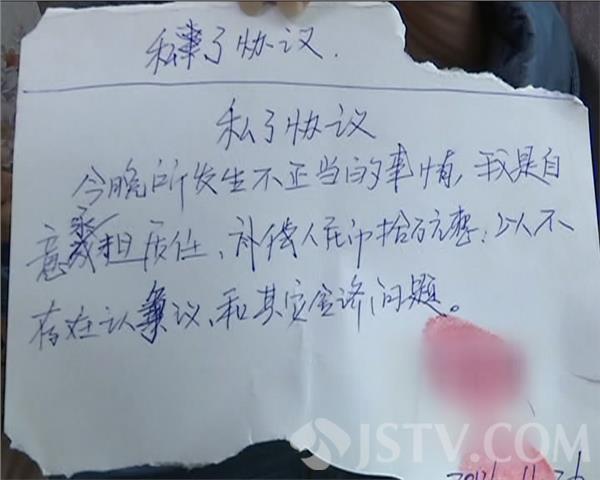 私事了协议.
私了协议
今晚所发生不正当的事情,我是自
意承担责任、补偿人民币拾万元整:以人不
存在认争议、和其它经济问题。
JSTV.COM